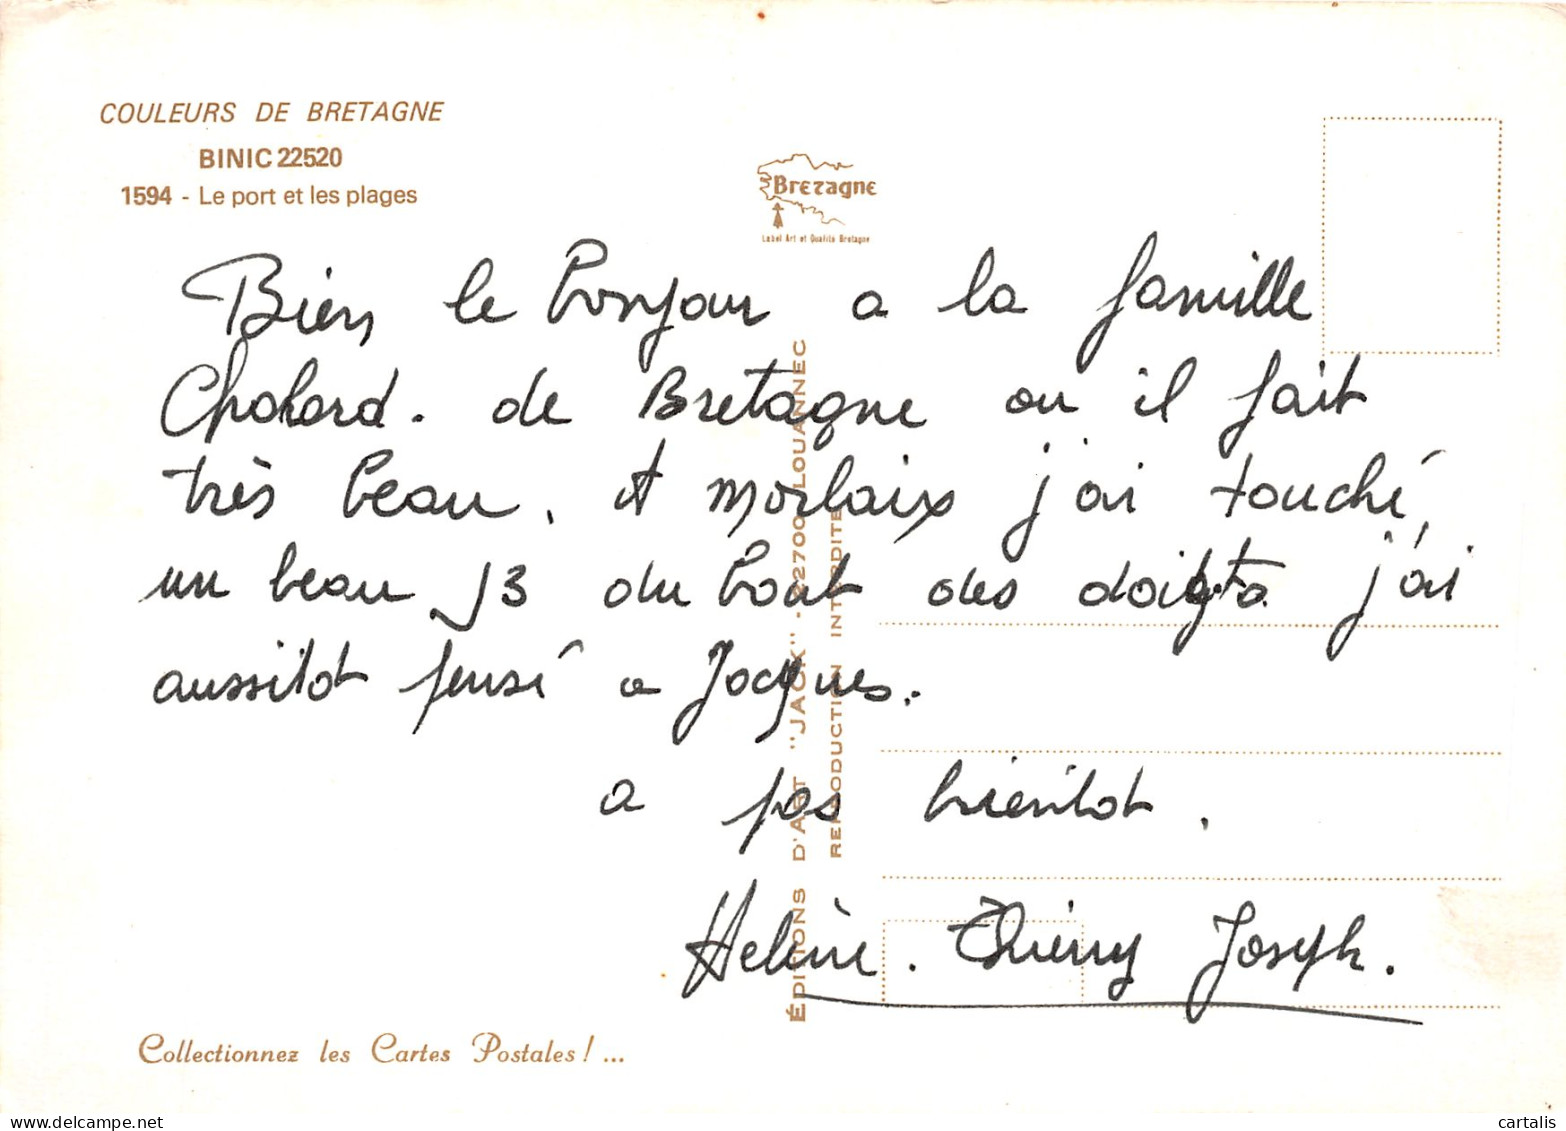 COULEURS DE BRETAGNE
BINIC 22520
1594 - Le port et les plages
Bretagne
Label Art et Qualité Bretagne
Bien le bonjour a la famille
de Bretagne ou il fait
très beau. A Morlaix j'ai touché,
un beau J3 du bout des doigts j'ai
aussitot pensé a Jacques.
a pas bientot.
Helène. Thierry Joseph.
ÉDITIONS D'ART "JACK" - 22700 LOUANNEC
REPRODUCTION INTERDITE
Collectionnez les Cartes Postales ! ...
cartalis